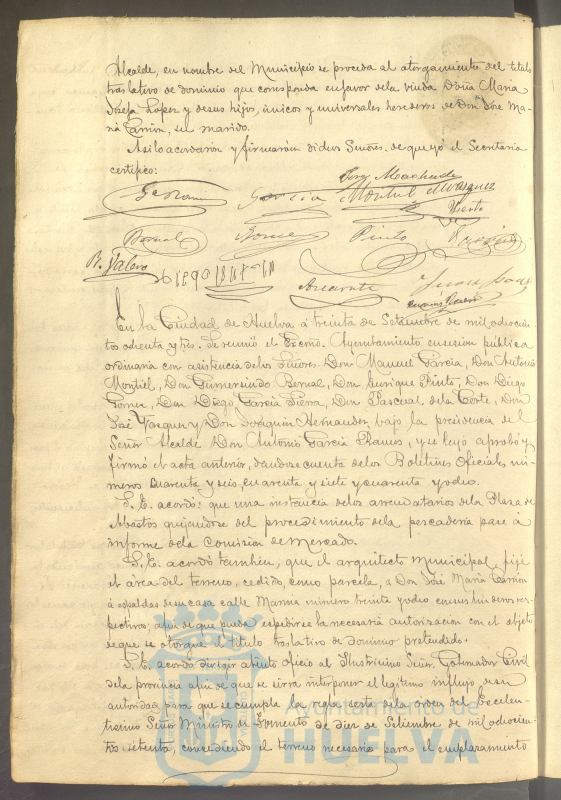 Alcalde, en nombre del Municipio se proceda al otorgamiento del titulo
traslativo de dominio que corresponda en favor de la viuda Doña Maria
Josefa Lopez y de sus hijos, únicos y universales herederos de Don José Ma-
ria Carrion, su marido.
Asi lo acordaron y firmaron dichos Señores de que yo el Secretario
certifico:
Jorge Machado
García Montiel Vazquez
Bernal Gomez Pinto
R. Valero
En la Ciudad de Huelva á treinta de Setiembre de mil ochocien-
tos ochenta y tres. Se reunió el Excmo. Ayuntamiento en sesion pública
ordinaria con asistencia de los Señores Don Manuel García, Don Antonio
Montiel, Don Gumersindo Bernal, Don Enrique Pinto, Don Diego
Gomez, Don Diego García Sierra, Don Pascual de la Corte, Don
José Vazquez y Don Joaquin Hernandez bajo la presidencia del
Señor Alcalde Don Antonio García Ramos, y se leyó aprobó y
firmó el acta anterior, dandose cuenta de los Boletines Oficiales nú-
meros cuarenta y seis, cuarenta y siete y cuarenta y ocho.
S. E. acordó: que una instancia de los arrendatarios de la Plaza de
Abastos quejandose del procedimiento de la pescadería pase á
informe de la Comision de Mercado.
S. E. acordó tambien, que el arquitecto Municipal fije
el área del terreno, cedido, como parcela, a Don José Maria Carrion
á espaldas de su casa calle Marina número treinta y ocho con sus linderos res-
pectivos, afin de que pueda expedirse la necesaria autorizacion con el objeto
de que se otorgue el título traslativo de dominio pretendido.
S. E. acordó dirigir atento oficio al Ilustrisimo Señor Gobernador Civil
de la provincia afin de que se sirva interponer el legitimo influjo de su
autoridad para que se cumpla la regla sesta de la orden del Excelen-
tisimo Señor Ministro de Fomento de diez de Setiembre de mil ochocien-
tos setenta, concediendo el terreno necesario para el emplazamiento
Ayuntamiento de
HUELVA